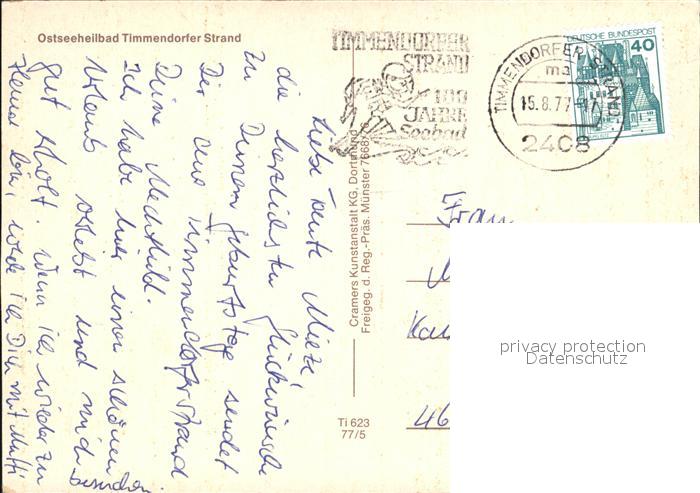 Ostseeheilbad Timmendorfer Strand
TIMMENDORFER
STRAND
100
JAHRE
Seebad
TIMMENDORFER STRAND
15.8.77-17
2408
DEUTSCHE BUNDESPOST
40
Liebe Tante Mieze,
die herzlichsten Glückwünsche
zu Deinem Geburtstage sendet
Dir aus Timmendorferstrand
Deine Mechthild.
Ich habe hier einen schönen
Urlaub verlebt und mich
gut erholt. Wenn ich wieder zu
Hause bin, werde ich Dich mit Mutti
besuchen.
Cramers Kunstanstalt KG, Dortmund
Freigeg. d. Reg.-Präs. Münster 7668
Ti 623
77/5
Frau
46
privacy protection
Datenschutz